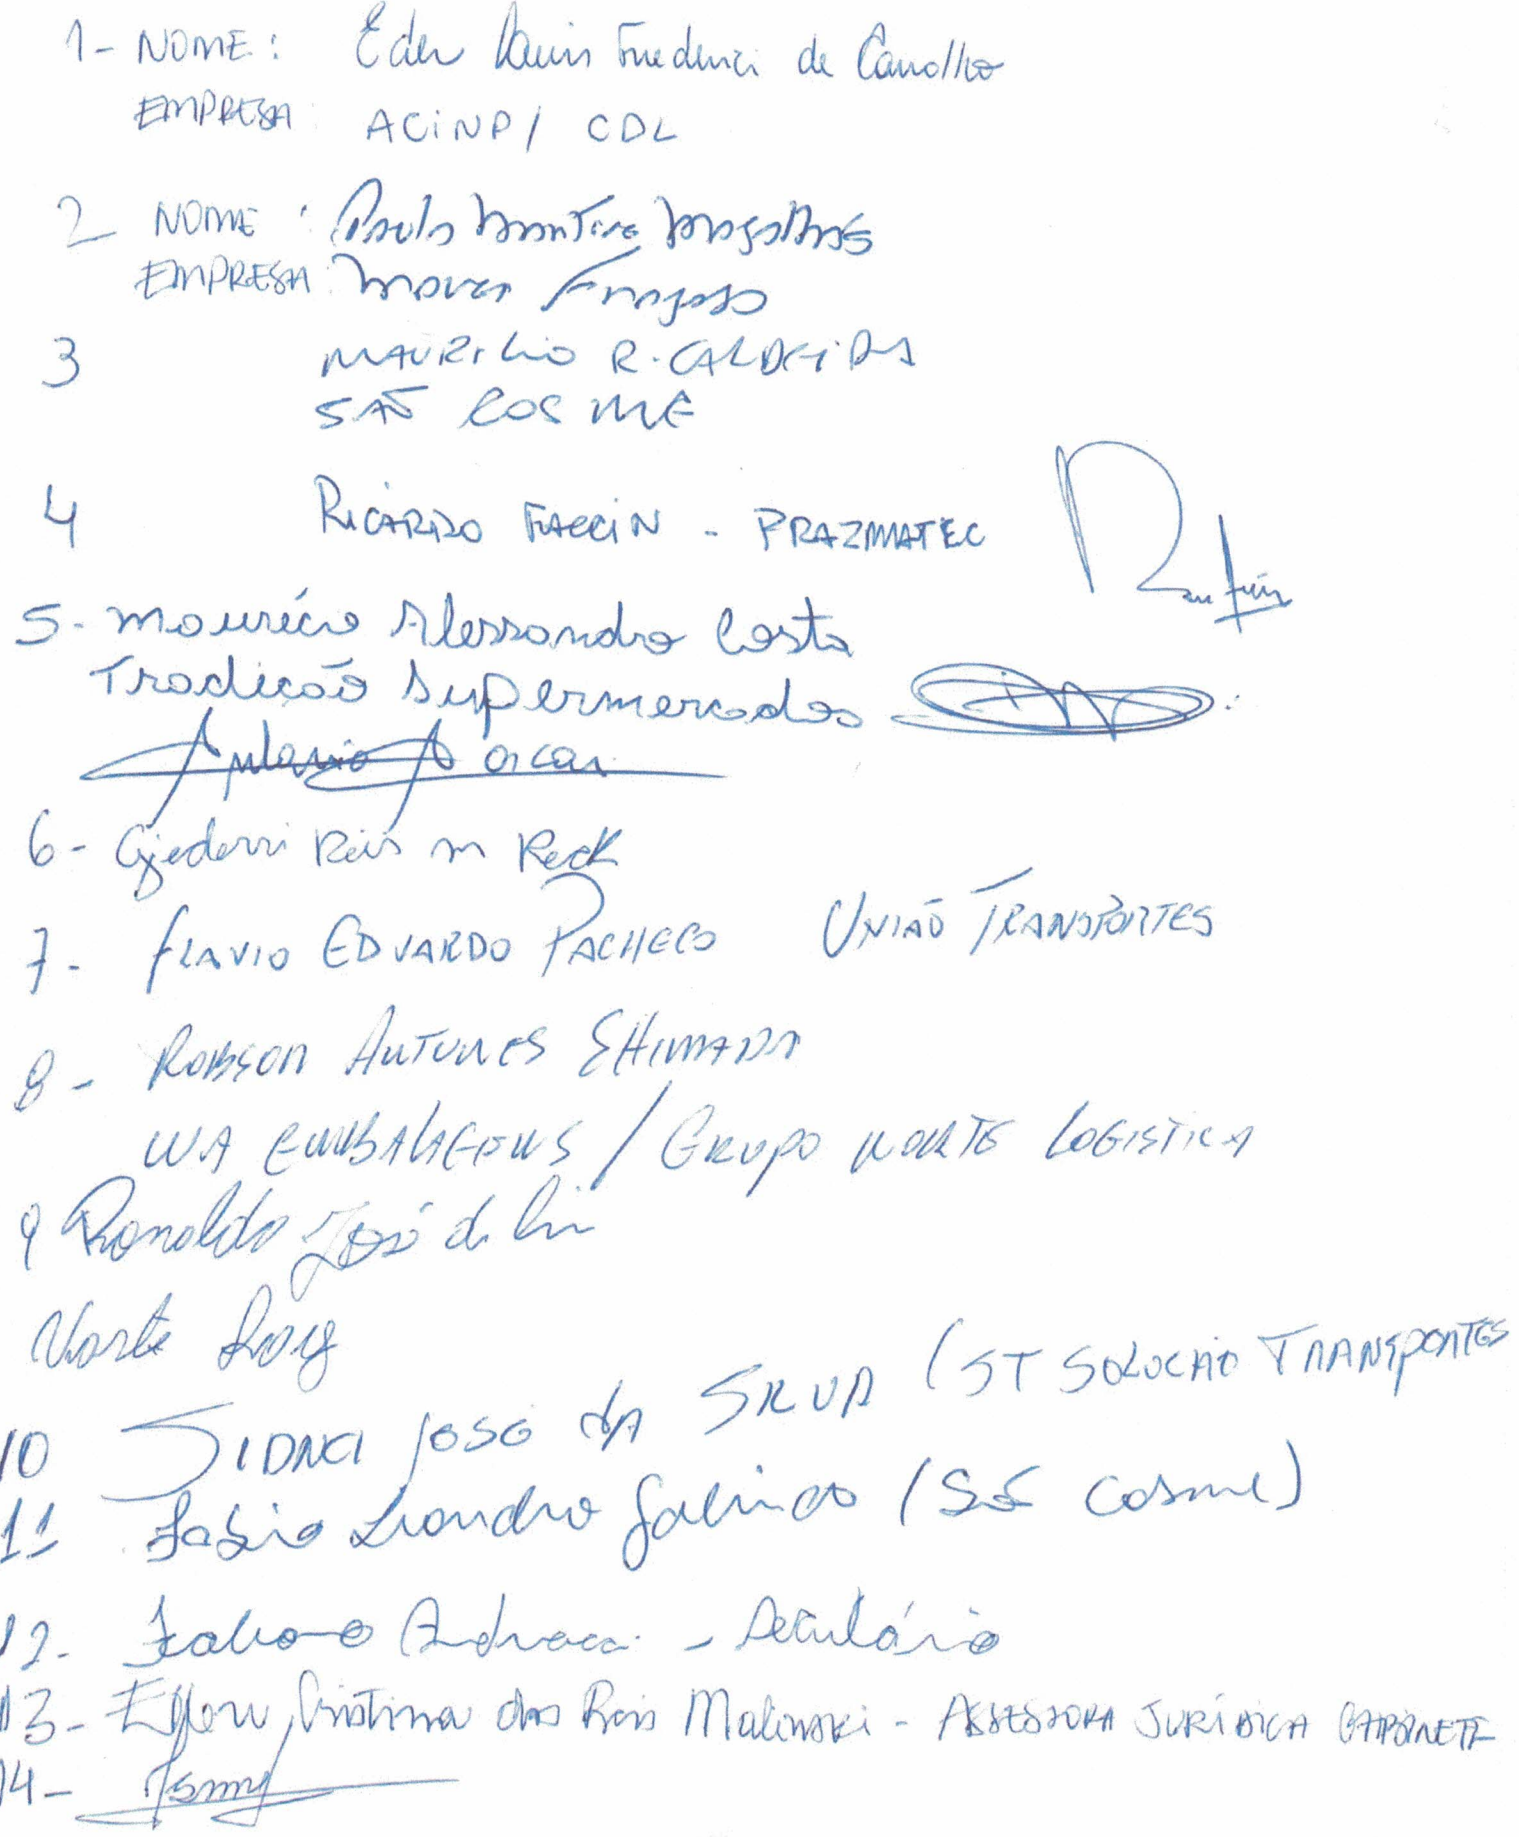 1- NOME: Eder Frederici de Carvalho
EMPRESA: ACINP / CDL
2 NOME: Paulo Monteiro Magalhães
EMPRESA: Fragoso
3 MAURILIO R. CALDEIRA
SÃO COSME
4 RICARDO FACCIN - PRAZMATEC
5- Maurício Alessandro Costa
Tradição Supermercados
Antonio
6- Reis m Reck
7- FLAVIO EDUARDO PACHECO UNIÃO TRANSPORTES
8- ROBSON ANTUNES SHIMADA
WA EMBALAGENS / GRUPO NORTE LOGISTICA
9 Ronaldo José de
Norte Log
10 SIDNEI JOSÉ DA SILVA (ST SOLUCÃO TRANSPORTES
11 Fabio Leandro Galindo (São Cosme)
12- - Secretário
13- Cristina dos Reis Malinski - ASSESSORA JURÍDICA GABINETE
14-